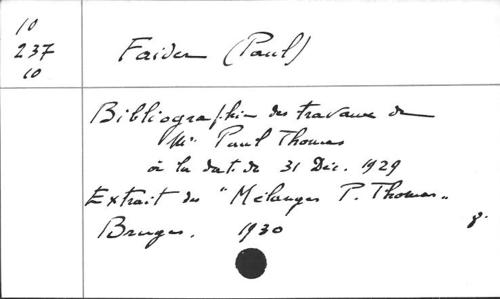 10
237
10
Faider (Paul)
Bibliographie des travaux de
Mr. Paul Thomas
à la date de 31 Déc. 1929
Extrait des "Mélanges P. Thomas"
Bruges. 1930
8.